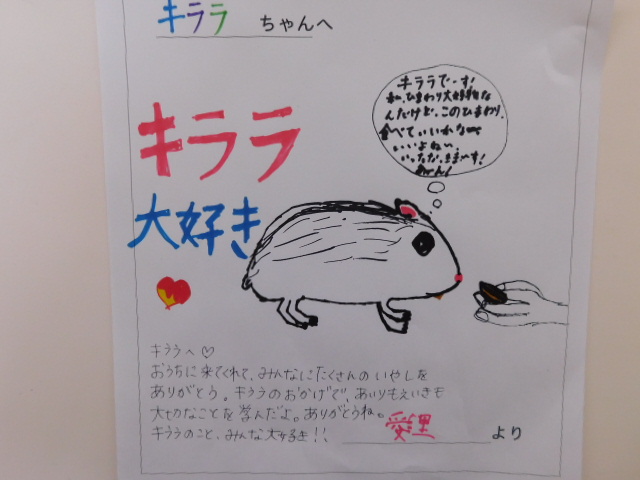 キララ ちゃんへ
キララ
大好き
キララでーす!
私、ひまわり大好物な
んだけど、このひまわり、
食べていいかな〜
いいよね。
いっただ、きまーす!
キララへ♡
おうちに来てくれて、みんなにたくさんのいやしを
ありがとう。キララのおかげで、あいりもえいきも
大切なことを学んだよ。ありがとうね。
キララのこと、みんな大好き!!
愛里 より